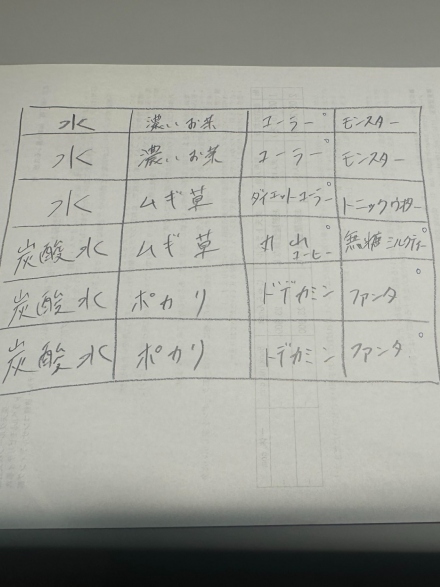 水 濃いお茶 コーラ° モンスター
水 濃いお茶 コーラ° モンスター
水 ムギ草 ダイエットコーラ° トニックウォーター
炭酸水 ムギ草 丸山° コーヒー 無糖ミルクティー
炭酸水 ポカリ ドデカミン ファンタ°
炭酸水 ポカリ ドデカミン ファンタ°